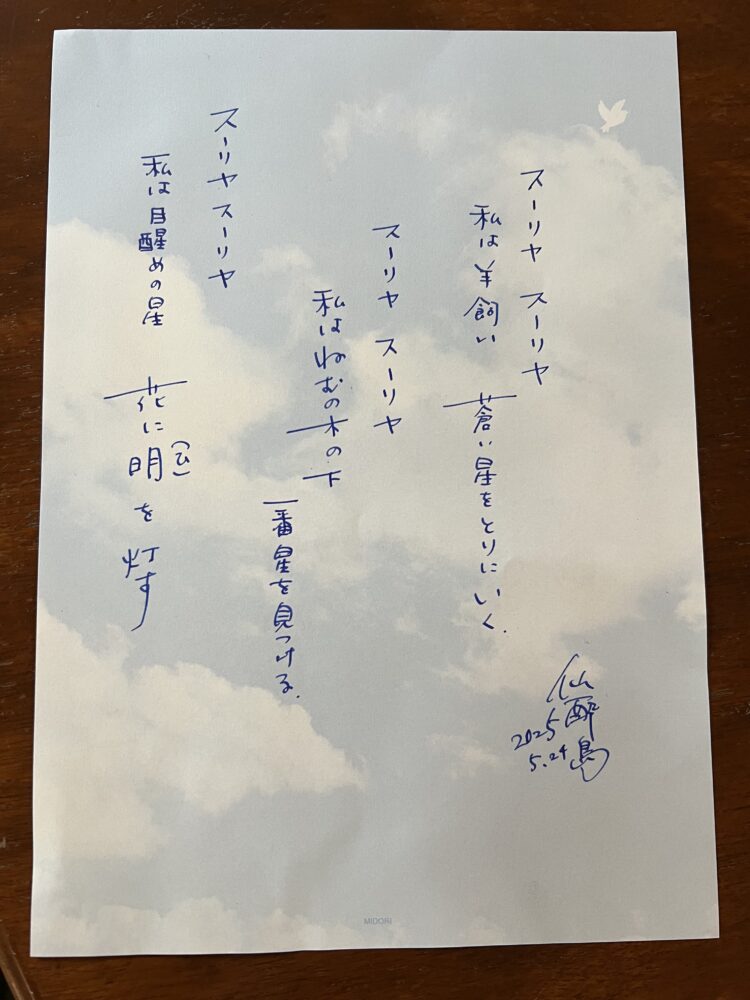 スーリヤ スーリヤ
私は羊飼い 蒼い星をとりにいく.
スーリヤ スーリヤ
私はねむの木の下
一番星を見つける.
スーリヤ スーリヤ
私は目醒めの星 花に明(ひ)を灯す
仙酔島
2025
5.24
MIDORI